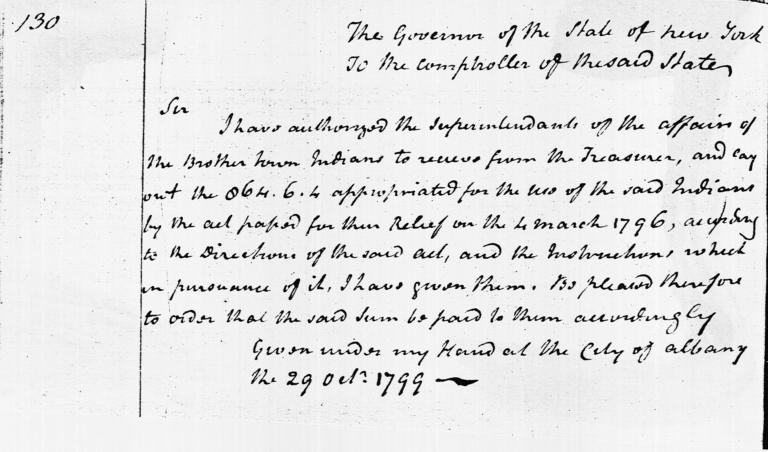 130
The Governor of the State of New York
To the Comptroller of the said State
Sir
I have authorized the Superintendants of the affairs of
the Brother town Indians to receive from the Treasurer, and lay
out the 864.6.4 appropriated for the use of the said Indians
by the act passed for their Relief on the 4 march 1796, according
to the Directions of the said act, and the Instructions which
in pursuance of it, I have given them. Be pleased therefore
to order that the said sum be paid to them accordingly
Given under my Hand at the City of albany
the 29 Octr. 1799